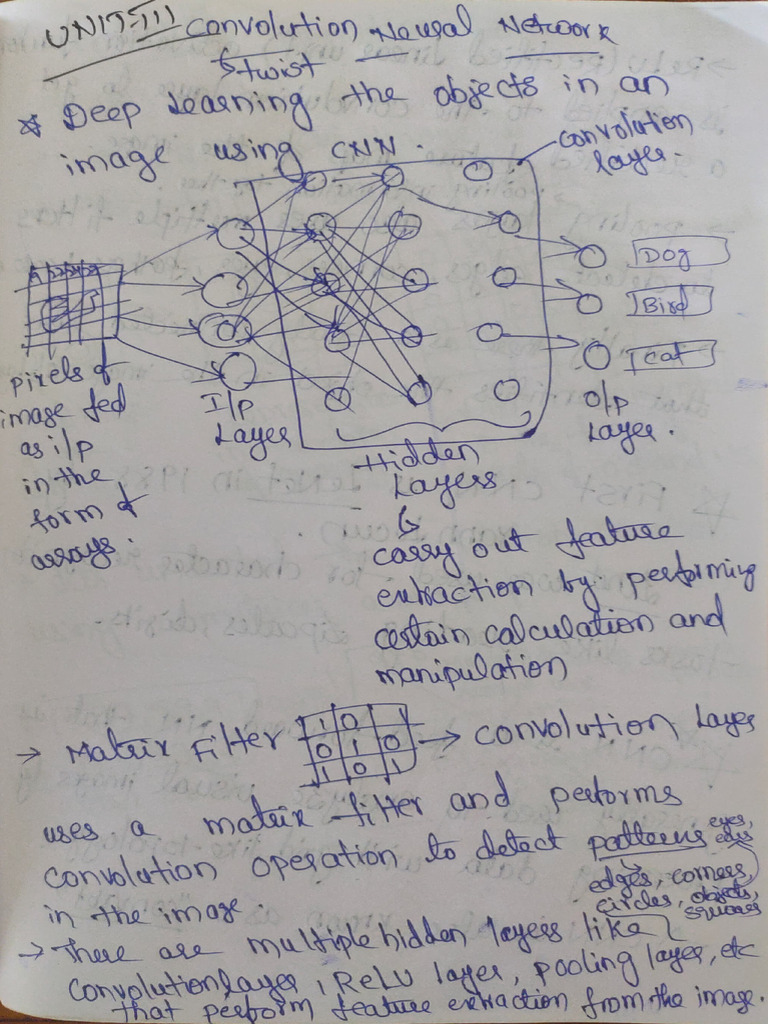 UNIT-III Convolution Neural Network
↳ twist
* Deep Learning the objects in an
image using CNN.
convolution
layer.
Dog
Bird
Cat
pixels of
image fed
as i/p
in the
form of
arrays.
I/p
Layer
O/p
Layer.
Hidden
Layers
↳
carry out feature
extraction by performing
certain calculation and
manipulation
→ Matrix Filter
1 0
0 1 0
1 0 1
→ convolution layer
uses a matrix filter and performs
convolution operation to detect patterns
eyes,
edges, corners,
circles, objects,
squares
in the image.
→ There are multiple hidden layers like
Convolution layer, ReLU layer, pooling layer, etc
that perform feature extraction from the image.